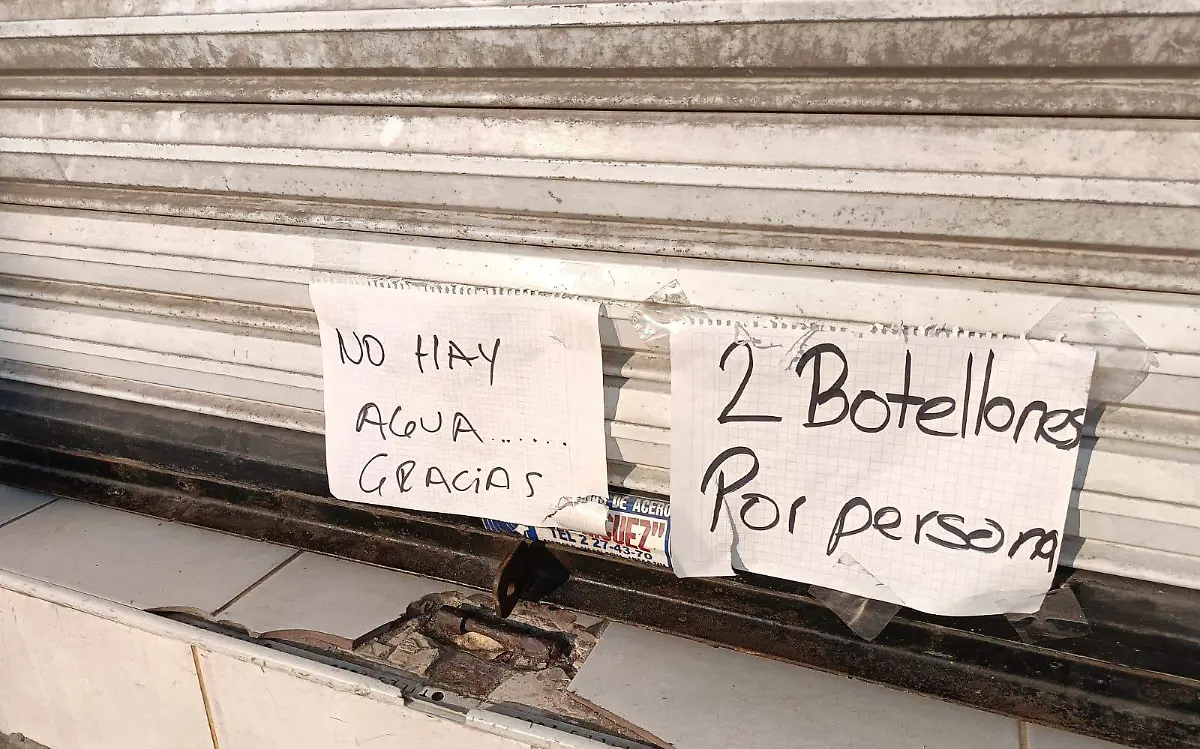 NO HAY
AGUA.......
GRACIAS
2 Botellones
Por persona
DE ACERO
GUEZ"
TEL 2 27-43-70